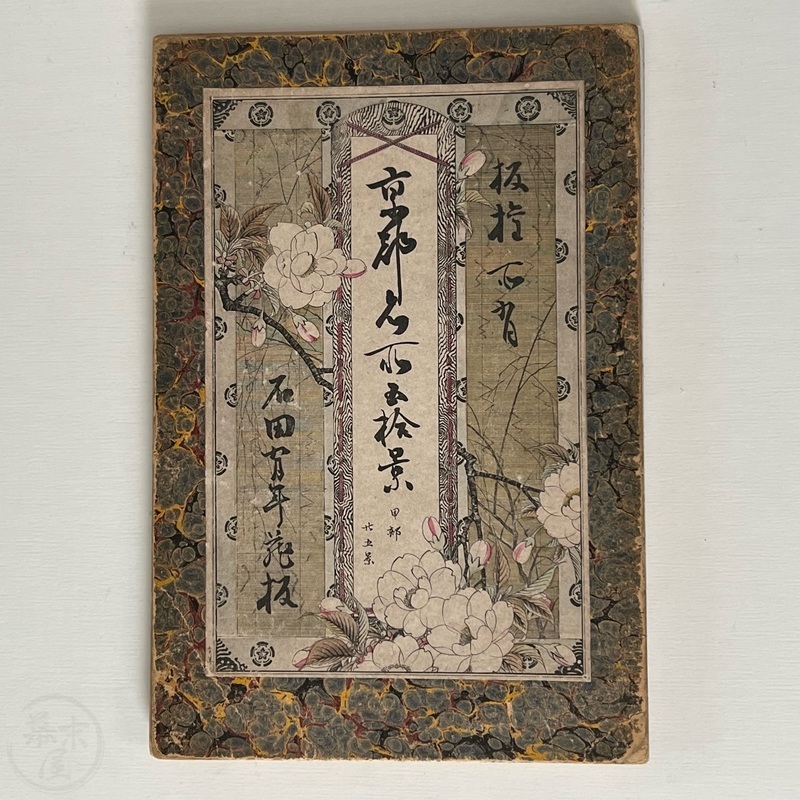 板権所有
京都名所五拾景
甲部
廿五景
石田有年蔵板
幕末屋